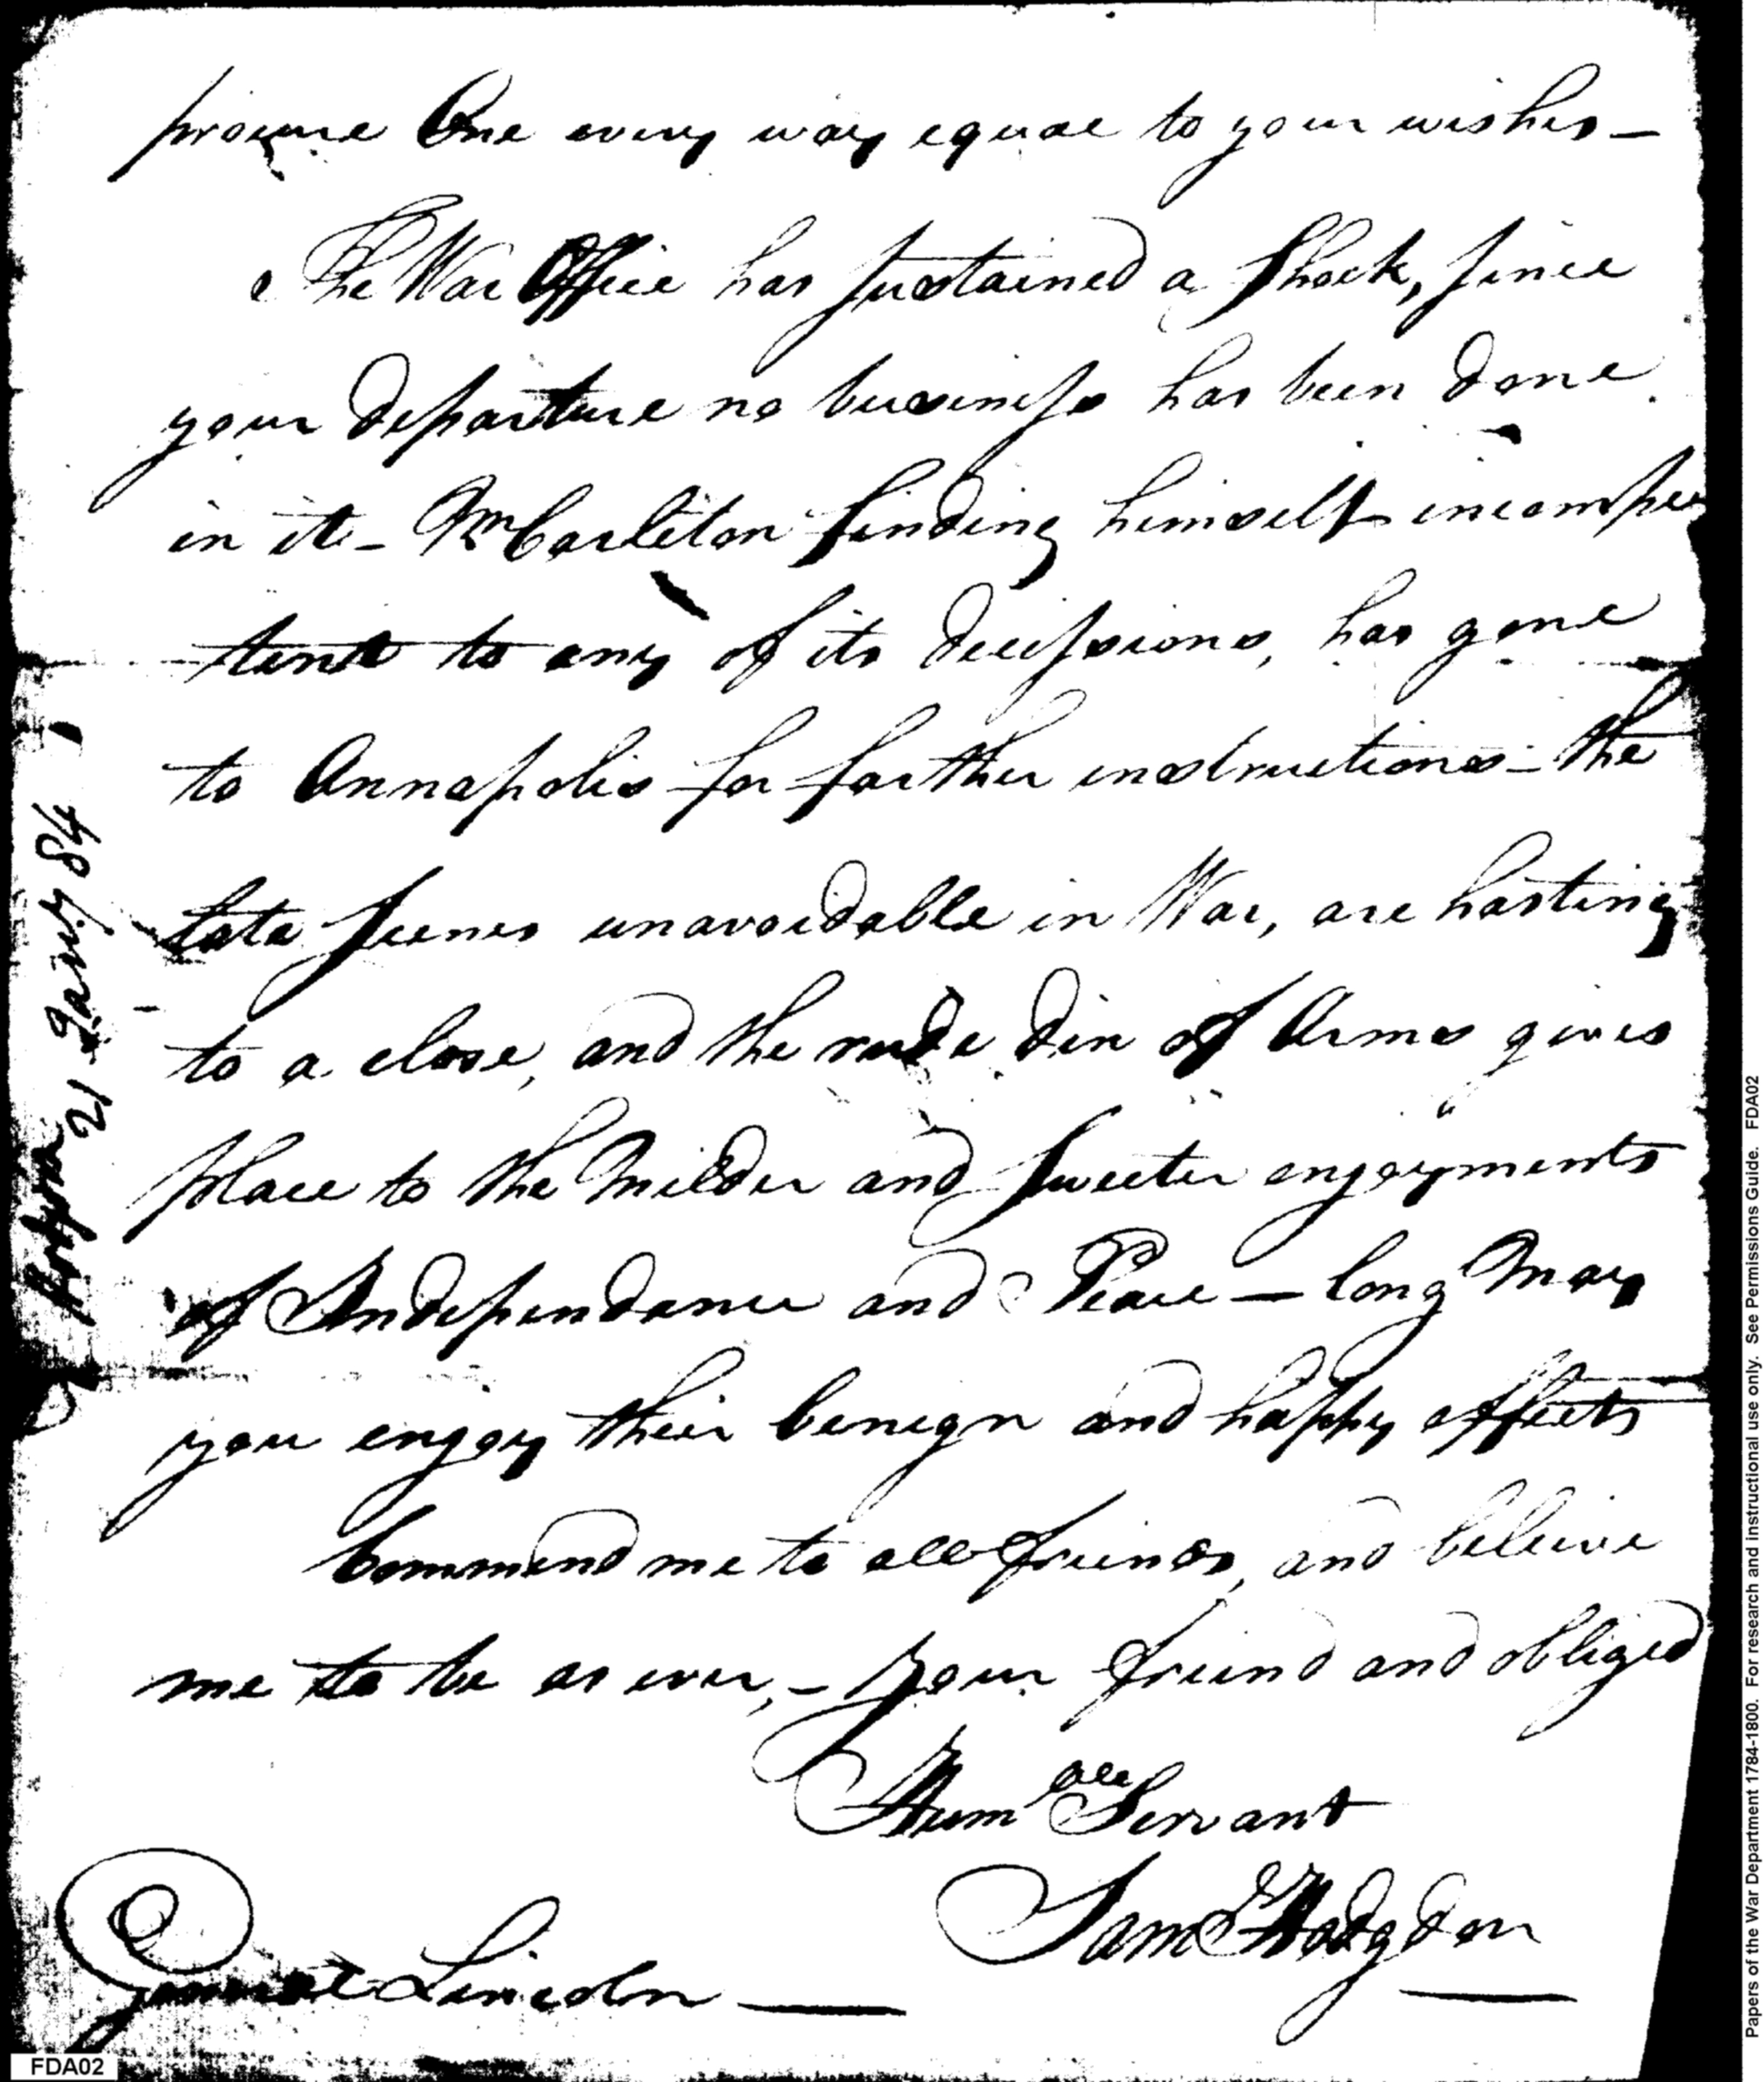 procure One every way equal to your wishes—
The War Office has sustained a Shock, since
your departure no business has been done
in it— Mr Carleton finding himself incompe
tent to any of its decissions, has gone
to Annapolis for farther instructions— the
late scenes unavoidable in War, are hasting
to a close, and the rude din of Arms gives
place to the Milder and sweeter enjoyments
of Independance and Peace — long may
you enjoy their benign and happy effects
Commend me to all friends, and beleive
me to be as ever,— your friend and obliged
Humble Servant
Saml Hodgdon
General Lincoln —
21 Jany 84
FDA02
Papers of the War Department 1784-1800. For research and instructional use only. See Permissions Guide. FDA02